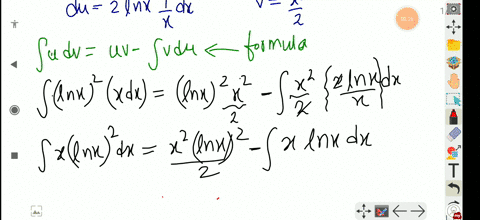 du = 2 lnx 1/x dx v = x²/2
∫u dv = uv - ∫v du ← formula
∫(lnx)² (x dx) = (lnx)² x²/2 - ∫ x²/2 {2 lnx/x} dx
∫x(lnx)² dx = x² (lnx)²/2 - ∫ x lnx dx